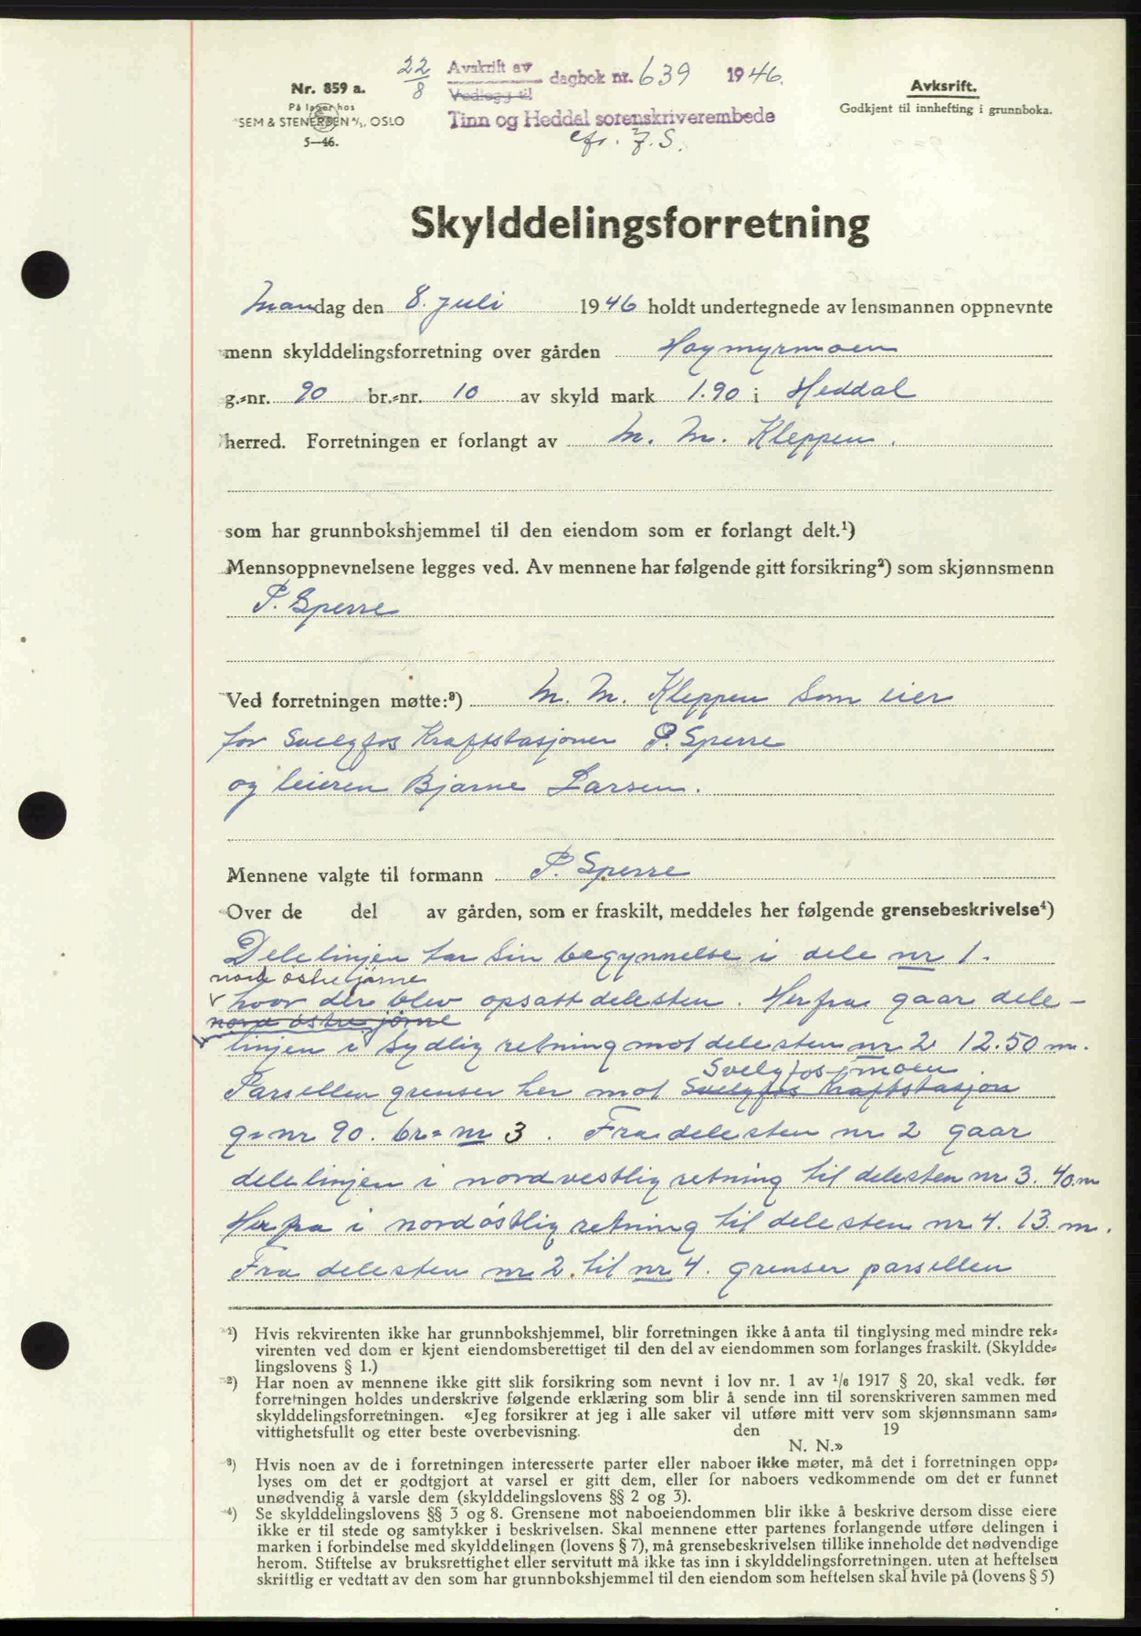 Nr. 859 a.
På lager hos
SEM & STENERSEN A/S, OSLO
5—46.
22/8
Avskrift av
Vedlegg til
dagbok nr. 639 1946.
Tinn og Heddal sorenskriverembede
cfr. J. S.
Avksrift.
Godkjent til innhefting i grunnboka.
Skylddelingsforretning
Mandag den 8. juli 1946 holdt undertegnede av lensmannen oppnevnte
menn skylddelingsforretning over gården Høymyrmoen
g.-nr. 90 br.-nr. 10 av skyld mark 1.90 i Heddal
herred. Forretningen er forlangt av M. M. Kleppen.
som har grunnbokshjemmel til den eiendom som er forlangt delt.¹)
Mennsoppnevnelsene legges ved. Av mennene har følgende gitt forsikring²) som skjønnsmenn
P. Sperre
Ved forretningen møtte:³) M. M. Kleppen som eier
for Svelgfos Kraftstasjoner P. Sperre
og leieren Bjarne Larsen.
Mennene valgte til formann P. Sperre
Over de del av gården, som er fraskilt, meddeles her følgende grensebeskrivelse⁴)
Delelinjen tar sin begynnelse i dele nr 1.
nord østre hjørne
hvor der blev opsatt delesten. Herfra gaar dele-
nord østre hjørne
linjen i sydlig retning mot delesten nr 2 12.50 m.
Svelgfos moen
Parsellen grenser her mot Svelgfos Kraftstasjon
g= nr 90. br= nr 3. Fra delesten nr 2 gaar
delelinjen i nordvestlig retning til delesten nr 3. 40 m
Herfra i nordøstlig retning til delesten nr 4. 13. m.
Fra delesten nr 2. til nr 4. grenser parsellen
¹) Hvis rekvirenten ikke har grunnbokshjemmel, blir forretningen ikke å anta til tinglysing med mindre rek-
virenten ved dom er kjent eiendomsberettiget til den del av eiendommen som forlanges fraskilt. (Skyldde-
lingslovens § 1.)
²) Har noen av mennene ikke gitt slik forsikring som nevnt i lov nr. 1 av 1/6 1917 § 20, skal vedk. før
forretningen holdes underskrive følgende erklæring som blir å sende inn til sorenskriveren sammen med
skylddelingsforretningen. «Jeg forsikrer at jeg i alle saker vil utføre mitt verv som skjønnsmann sam-
vittighetsfullt og etter beste overbevisning. den 19
N. N.»
³) Hvis noen av de i forretningen interesserte parter eller naboer ikke møter, må det i forretningen opp-
lyses om det er godtgjort at varsel er gitt dem, eller for naboers vedkommende om det er funnet
unødvendig å varsle dem (skylddelingslovens §§ 2 og 3).
⁴) Se skylddelingslovens §§ 3 og 8. Grensene mot naboeiendommen blir ikke å beskrive dersom disse eiere
ikke er til stede og samtykker i beskrivelsen. Skal mennene etter partenes forlangende utføre delingen i
marken i forbindelse med skylddelingen (lovens § 7), må grensebeskrivelsen tillike inneholde det nødvendige
herom. Stiftelse av bruksrettighet eller servitutt må ikke tas inn i skylddelingsforretningen, uten at heftelsen
skriftlig er vedtatt av den som har grunnbokshjemmel til den eiendom som heftelsen skal hvile på (lovens § 5)